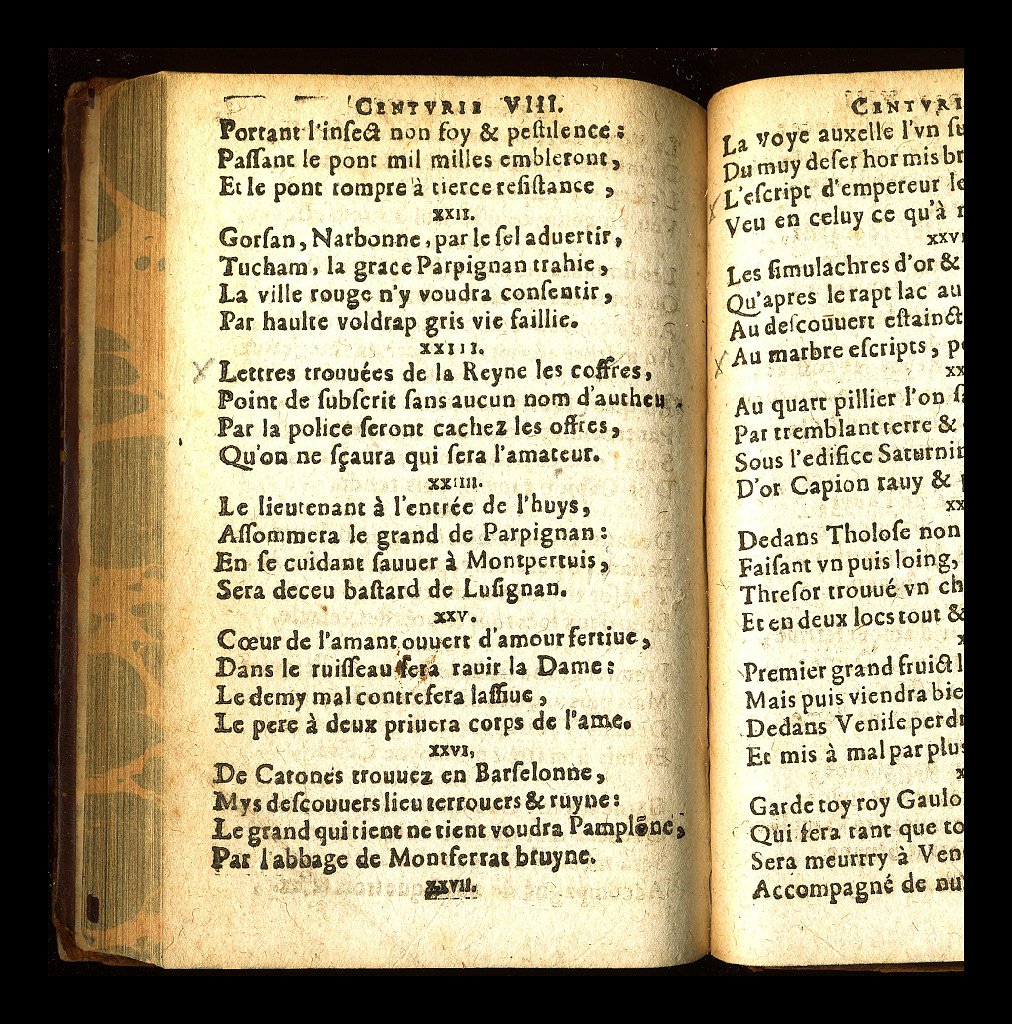 CENTVRIE VIII.
Portant l'infect non foy & peſtilence:
Paſſant le pont mil milles embleront,
Et le pont rompre à tierce reſiſtance,
XXII.
Gorſan, Narbonne, par le ſel aduertir,
Tucham, la grace Parpignan trahie,
La ville rouge n'y voudra conſentir,
Par haulte voldrap gris vie faillie.
XXIII.
Lettres trouuées de la Reyne les coffres,
Point de ſubſcrit ſans aucun nom d'autheu.
Par la police ſeront cachez les offres,
Qu'on ne ſçaura qui ſera l'amateur.
XXIIII.
Le lieutenant à l'entrée de l'huys,
Aſſommera le grand de Parpignan:
En ſe cuidant ſauuer à Montpertuis,
Sera deceu baſtard de Luſignan.
XXV.
Cœur de l'amant ouuert d'amour fertiue,
Dans le ruiſſeau fera rauir la Dame:
Le demy mal contrefera laſſiue,
Le pere à deux priuera corps de l'ame.
XXVI,
De Catones trouuez en Barſelonne,
Mys deſcouuers lieu terrouers & ruyne:
Le grand qui tient ne tient voudra Pamplōne,
Par l'abbage de Montferrat bruyne.
XXVII.
CENTVRI
La voye auxelle l'vn
Du muy deſer hor mis
L'eſcript d'empereur
Veu en celuy ce qu'à
XXVI
Les ſimulachres d'or &
Qu'apres le rapt lac au
Au deſcouuert eſtainct
Au marbre eſcripts,
XX
Au quart pillier l'on
Par tremblant terre &
Sous l'edifice Saturnin
D'or Capion rauy &
XX
Dedans Tholoſe non
Faiſant vn puis loing,
Threſor trouué vn
Et en deux locs tout &
Premier grand fruict
Mais puis viendra
Dedans Veniſe
Et mis à mal par plus
Garde toy roy Gaulo
Qui ſera tant que
Sera meurtry à
Accompagné de